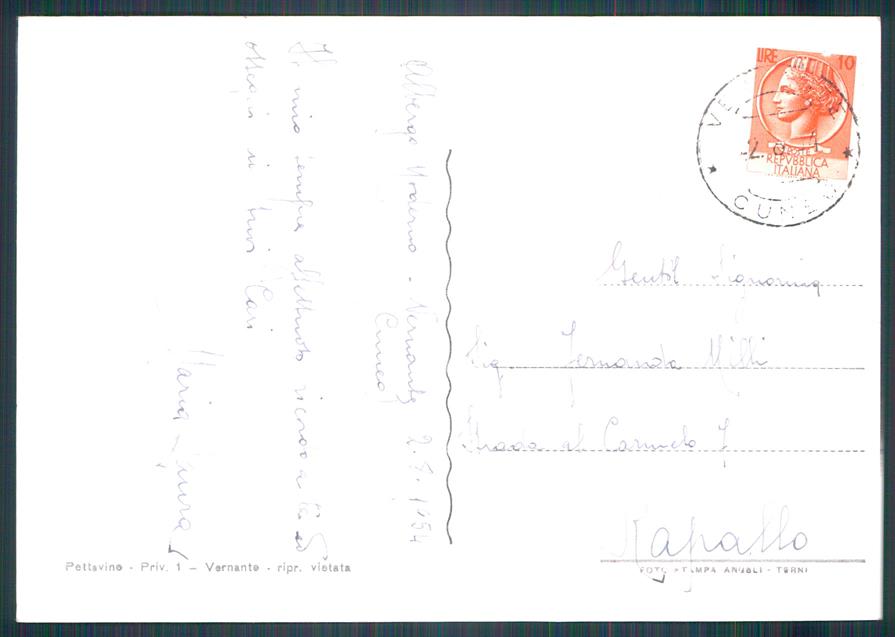 Albergo Moderno - Vernante
Cuneo
2. 1954
Il mio sempre affettuoso ricordo a te ed
ossequi ai tuoi Cari
Maria Laura
LIRE 10
POSTE
REPVBBLICA
ITALIANA
CUNEO
Gentil Signorina
Sig. Fernanda Milli
Strada al Carmelo 7
Rapallo
Pettavino - Priv. 1 - Vernante - ripr. vietata
FOTO STAMPA ANGELI - TERNI